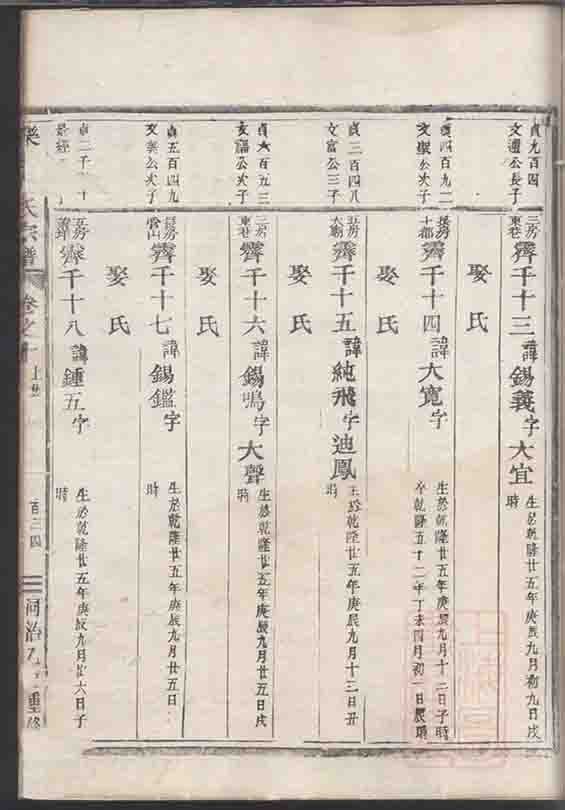 貞九百四
文通公長子
三房
東巷
霽千十三
諱錫義字大宜
生於乾隆廿五年庚辰九月初九日戌
時
娶氏
貞四百九二
文 公次子
長房
十都
霽千十四
諱大寬字
生於乾隆廿五年庚辰九月十二日子時
卒乾隆五十二年丁未四月初二日辰時
娶氏
貞三百四八
文富公三子
二房
霽千十五
諱純飛字迪鳳
生於乾隆廿五年庚辰九月十三日丑
時
娶氏
貞六百五三
文 公次子
三房
東巷
霽千十六
諱錫鳴字大聲
生於乾隆廿五年庚辰九月廿五日戌
時
娶氏
貞五百四九
文 公次子
長房
管山
霽千十七
諱錫鑑字
生於乾隆廿五年庚辰九月廿五日
時
娶氏
貞二千 十
五房
霽千十八
諱鍾五字
生於乾隆廿五年庚辰九月廿六日子
時
氏宗譜
卷之十
上廿
百三四
同治九 重修